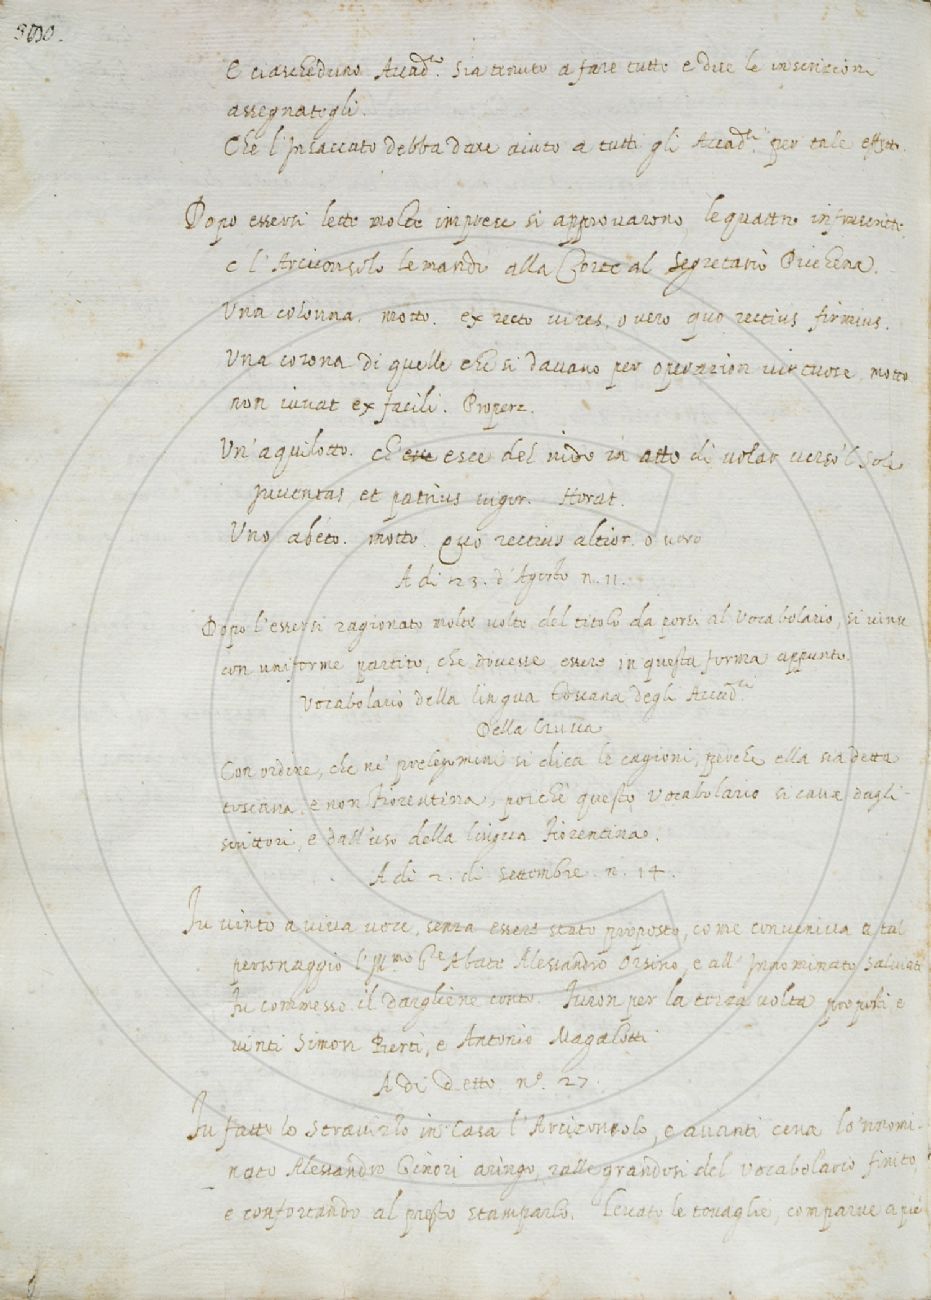 E ciascheduno Accad.ci sia tenuto a fare tutto e dire le inscrizioni
assegnategli.
Che l'Insaccato debba dare aiuto a tutti gli Accad.ci per tale effetto.
Dopo essersi lette molte imprese si approvarono, le quattro infrascritte.
e l'Arciconsolo le mandò alla Corte al Segretario Picchena.
Una colonna. motto. ex recto vires, o vero quo rectius firmius.
Una corona di quelle che si davano per operazion virtuose motto
non iuvat ex facili. Properz.
Un'aquilotto. ch' esce del nido in atto di volar verso 'l Sole
Juventas, et patrius vigor. Horat.
Uno abeto. motto. Quo rectius altior. o vero
A di 23. d'Agosto n. 11.
Dopo l'essersi ragionato molte volte del titolo da porsi al Vocabolario, si vinse
con uniforme partito, che dovesse essere in questa forma appunto.
Vocabolario della lingua Toscana degli Accad.ci
Della Crusca
Con ordine, che ne' prolegomini si dica le cagioni, perche ella sia detta
toscana, e non Fiorentina, poichè questo Vocabolario si cava dagli
scrittori, e dall'uso della lingua Fiorentina.
A di 2. di Settembre. n. 14.
Fu vinto a viva voce, senza essere stato proposto, come conveniva a tal
personaggio l'Ill.mo Abate Alessandro Orsino, e all'Innominato Salviati
fu commesso il dargliene conto. Furon per la terza volta proposti, e
vinti Simon Berti, e Antonio Magalotti
A di detto n.o 27.
Fu fatto lo Stravizzo in Casa l'Arciconsolo, e avanti cena lo 'nnomi-
nato Alessandro Ginori aringò, rallegrandosi del vocabolario finito,
e confortando al presto stamparlo. Levato le tovaglie, comparve a piè